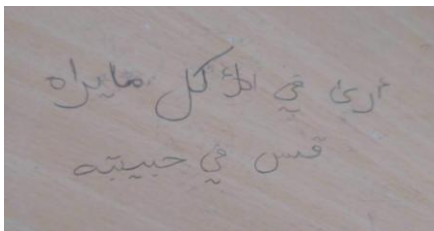 أرى في الأكل مايراه
قيس في حبيبته